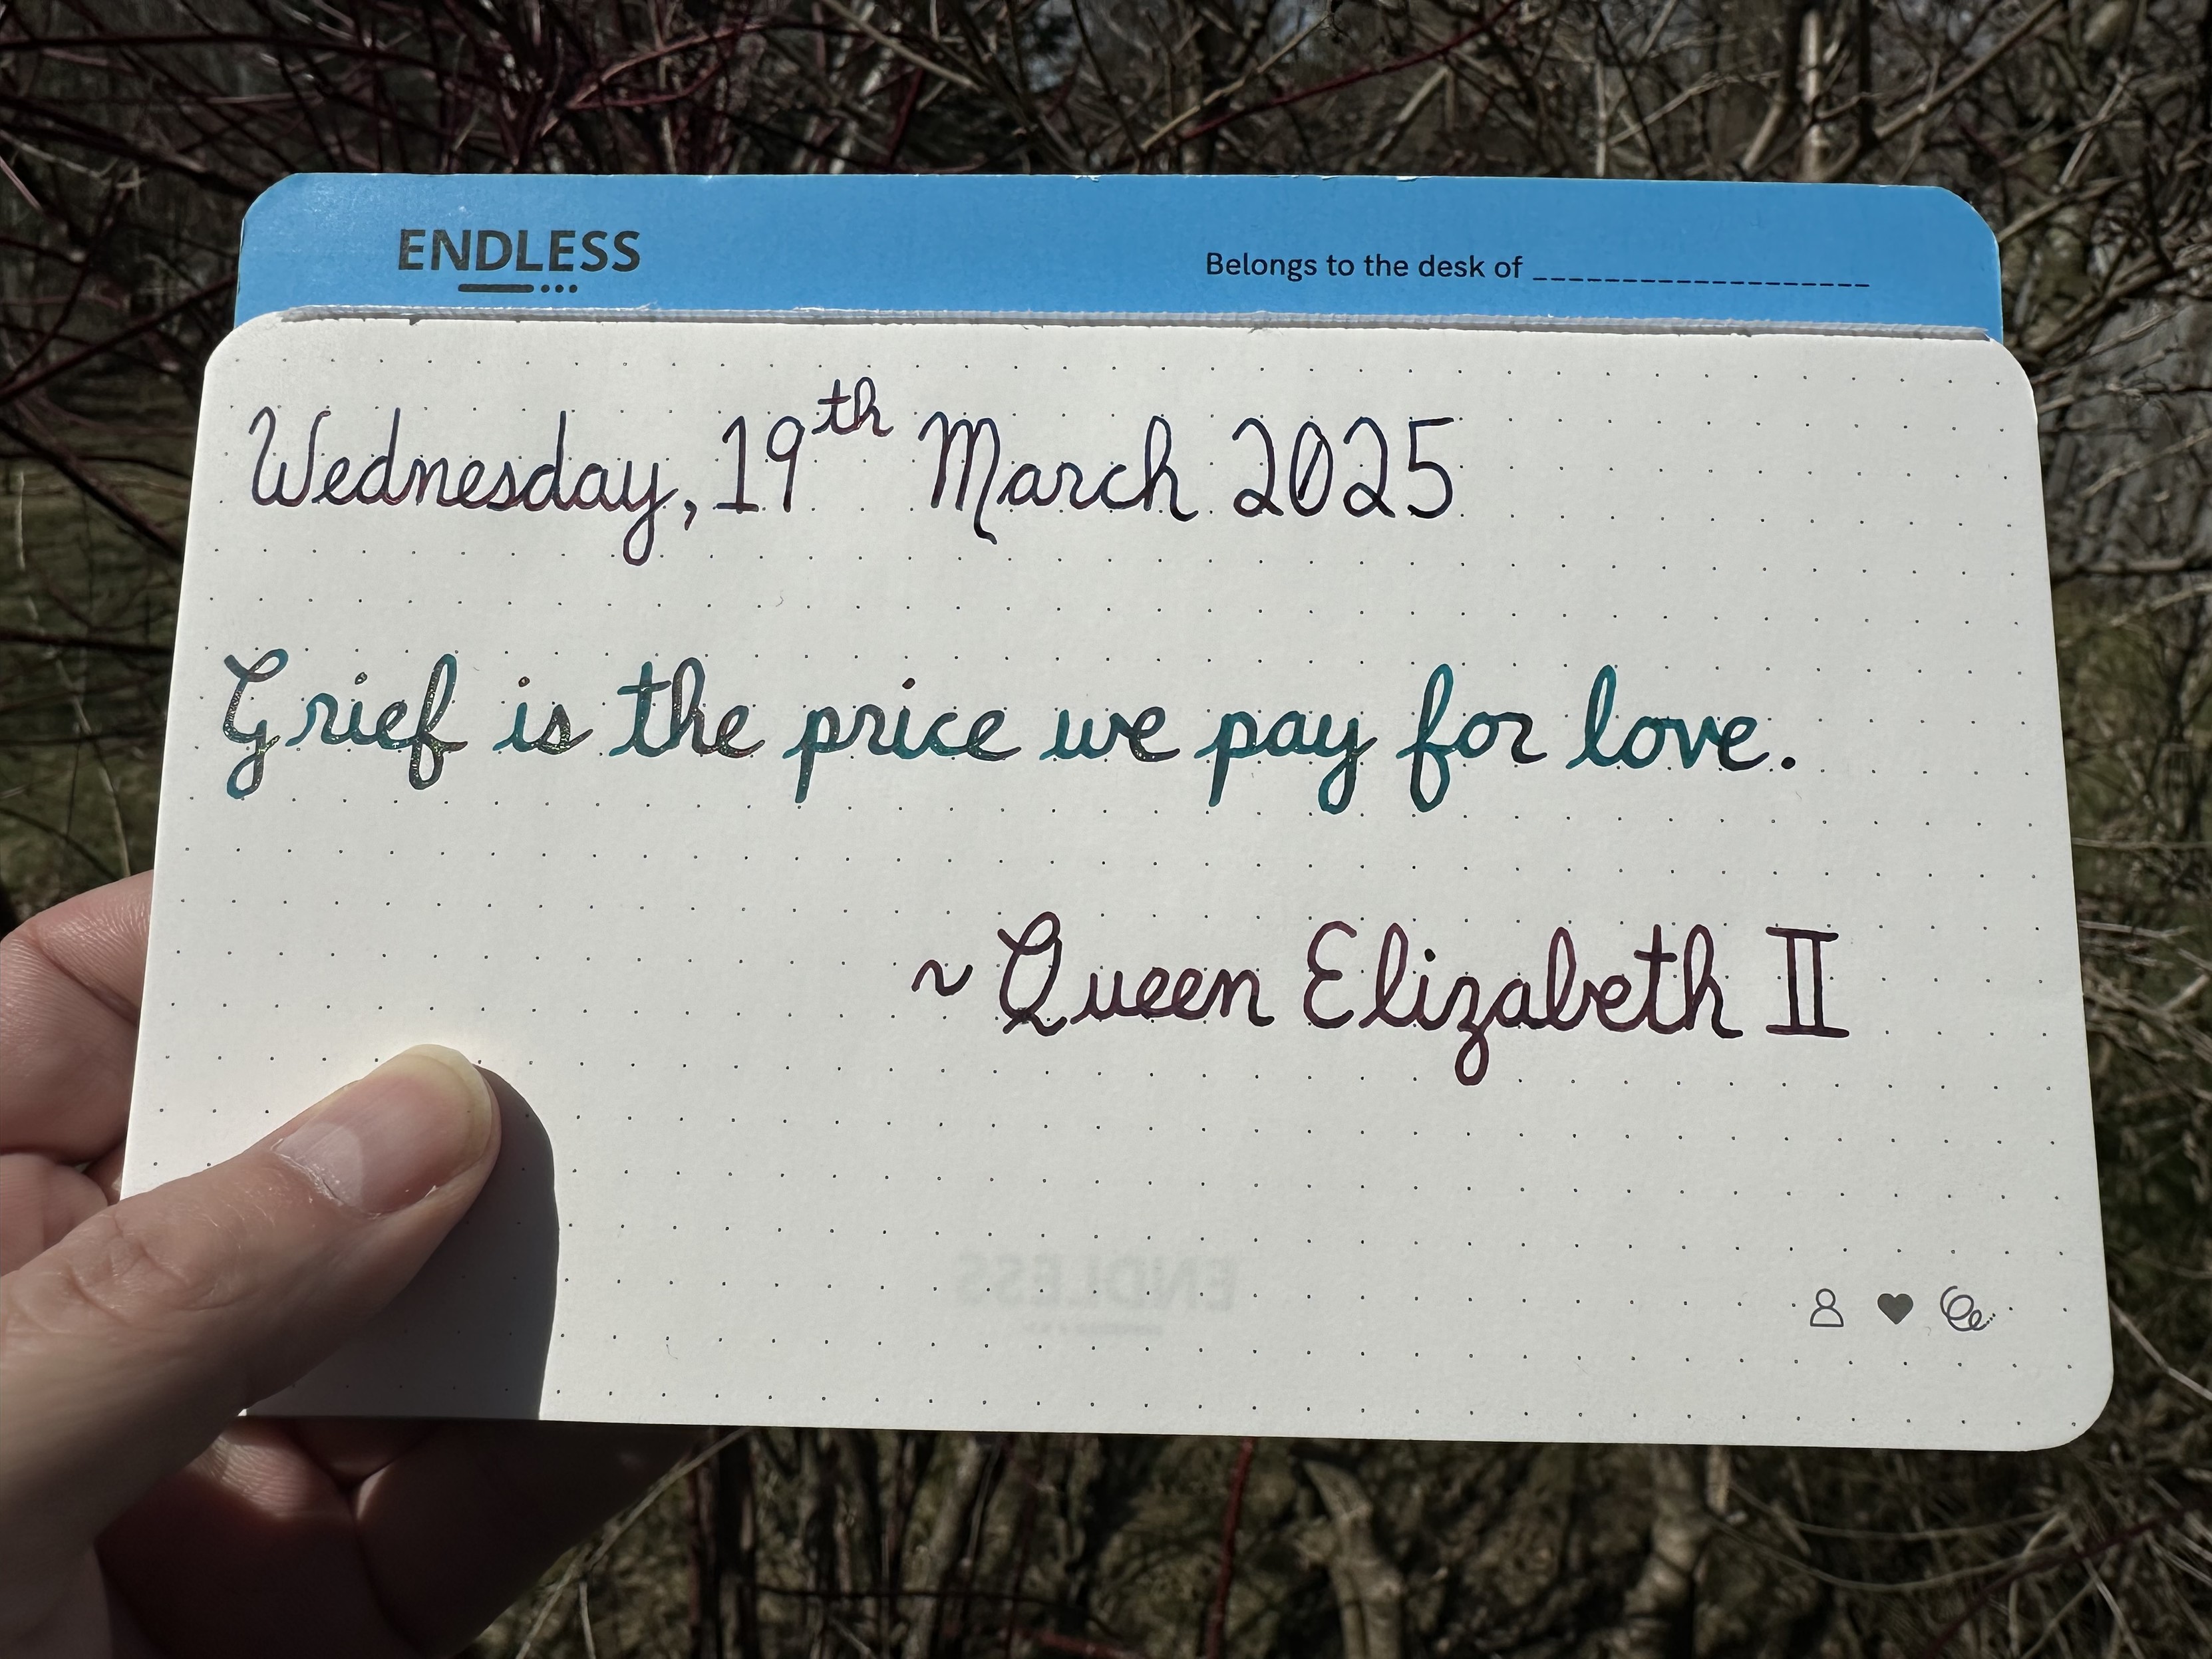 ENDLESS
Belongs to the desk of ____________________
Wednesday, 19th March 2025
Grief is the price we pay for love.
~ Queen Elizabeth II
ENDLESS